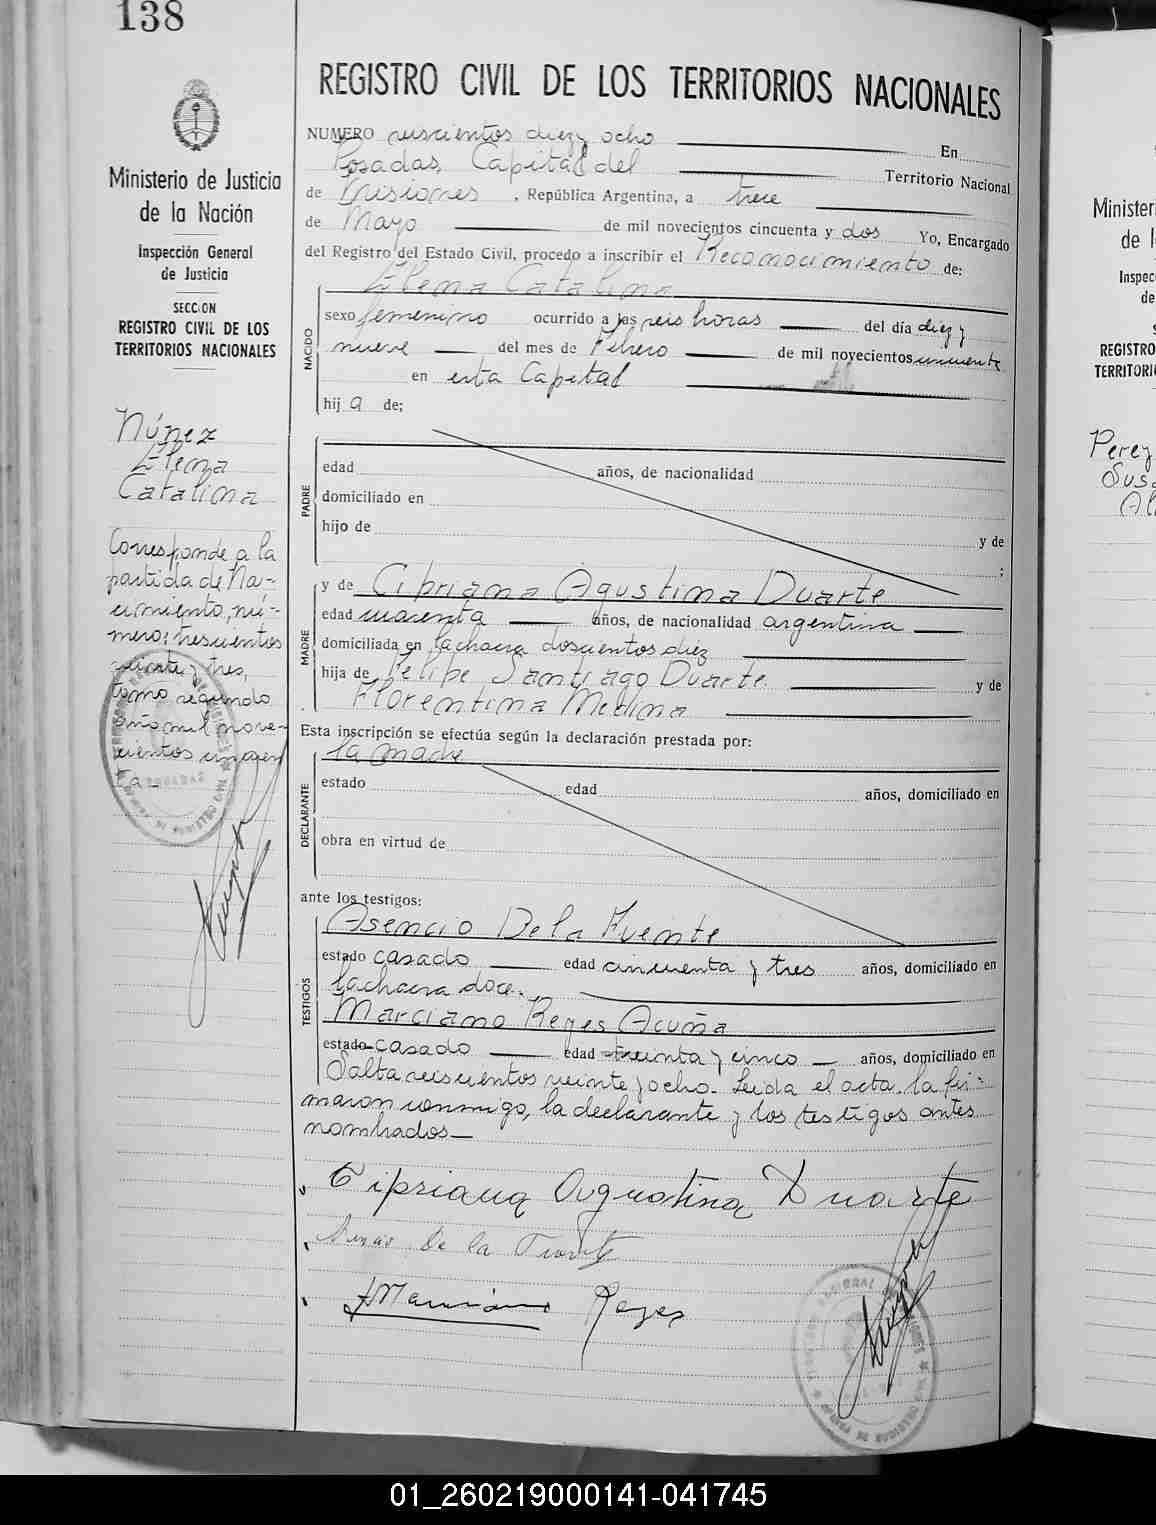 138
Ministerio de Justicia
de la Nación
Inspección General
de Justicia
SECCION
REGISTRO CIVIL DE LOS
TERRITORIOS NACIONALES
Núñez
Elena
Catalina
Corresponde a la
partida de Na-
cimiento, nú-
mero: trescientos
veinte y tres,
tomo segundo
año mil nove-
cientos cincuen
ta.-
REGISTRO CIVIL DE LOS TERRITORIOS NACIONALES
NUMERO seiscientos diez y ocho En
Posadas, Capital del Territorio Nacional
de Misiones, República Argentina, a trece
de Mayo de mil novecientos cincuenta y dos Yo, Encargado
del Registro del Estado Civil, procedo a inscribir el Reconocimiento de:
NACIDO
Elena Catalina
sexo femenino ocurrido a las seis horas del día diez y
nueve del mes de Febrero de mil novecientos cincuenta
en esta Capital
hij a de;
PADRE
edad años, de nacionalidad
domiciliado en
hijo de y de
;
MADRE
y de Cipriana Agustina Duarte
edad cuarenta años, de nacionalidad argentina
domiciliada en la chacra doscientos diez
hija de Felipe Santiago Duarte y de
Florentina Medina
Esta inscripción se efectúa según la declaración prestada por:
la madre
DECLARANTE
estado edad años, domiciliado en
obra en virtud de
ante los testigos:
TESTIGOS
Asencio De la Fuente
estado casado edad cincuenta y tres años, domiciliado en
la chacra doce.
Marciano Reyes Acuña
estado casado edad treinta y cinco años, domiciliado en
Salta seiscientos veinte y ocho. Leída el acta, la fir-
maron conmigo, la declarante y los testigos antes
nombrados—
Cipriana Agustina Duarte
De la Fuente
Marciano Reyes
Minister
de l
Inspec
de
S
REGISTRO
TERRITORI
Perez
Sus
Al
01_260219000141-041745